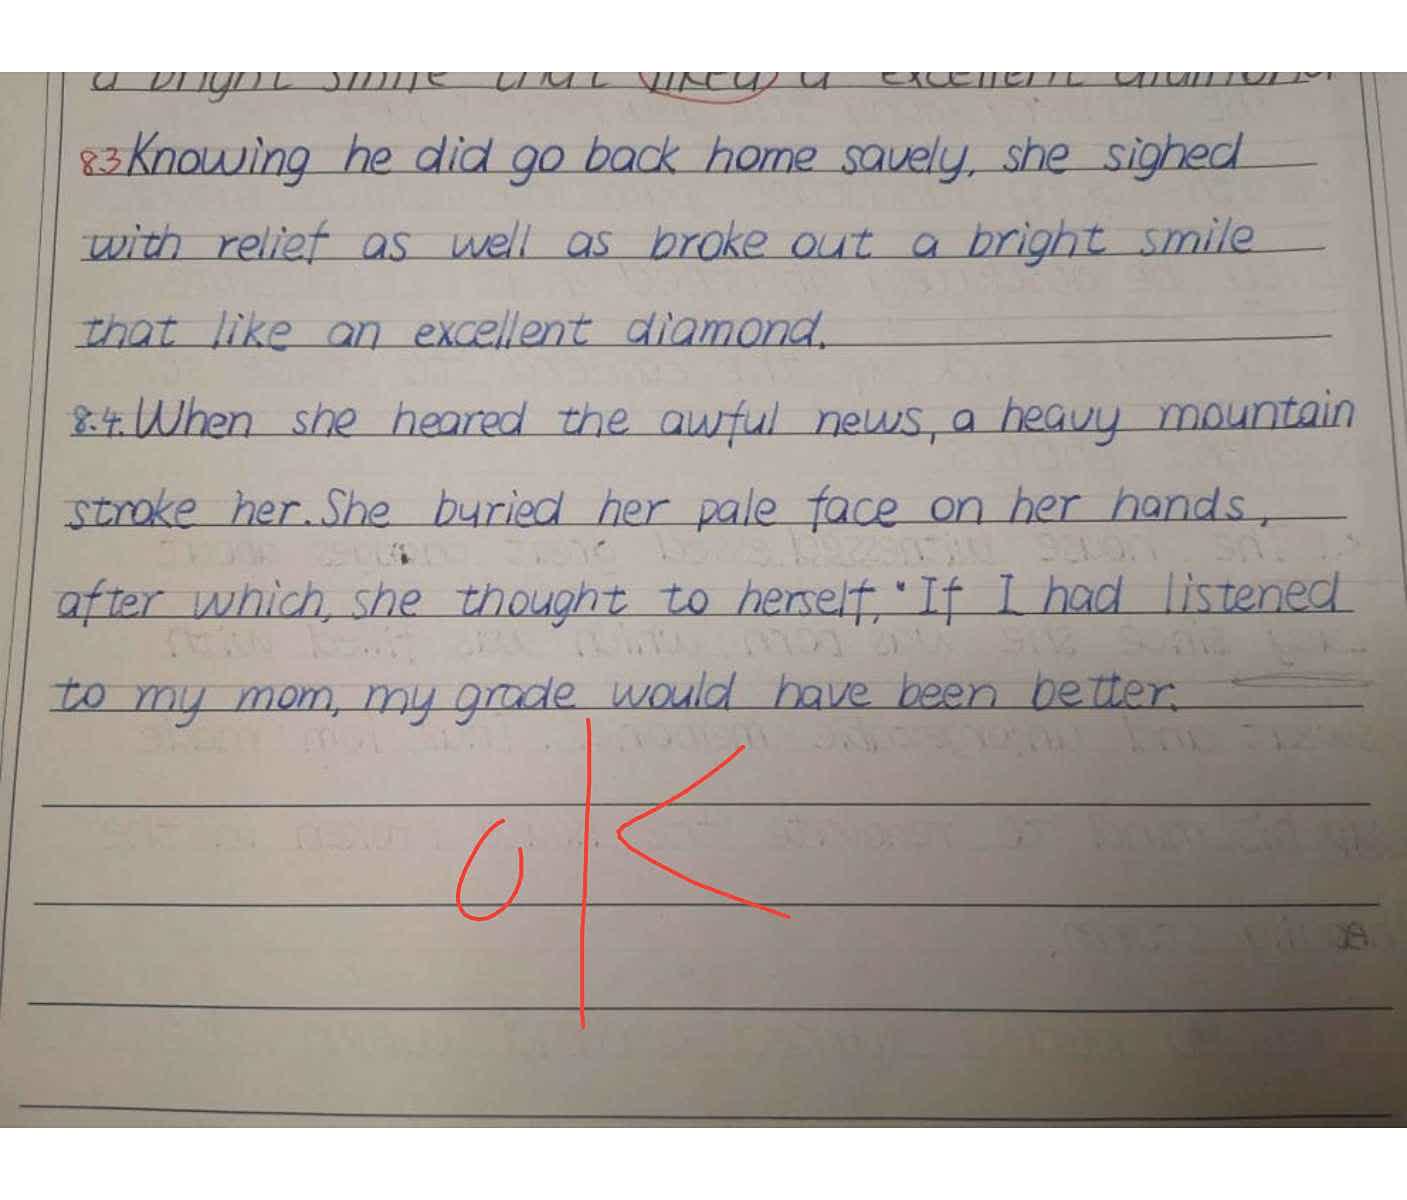 a bright smile that liked a excellent diamond.
83 Knowing he did go back home savely, she sighed
with relief as well as broke out a bright smile
that like an excellent diamond.
8.4. When she heared the awful news, a heavy mountain
stroke her. She buried her pale face on her hands,
after which, she thought to herself, "If I had listened
to my mom, my grade would have been better.
OK